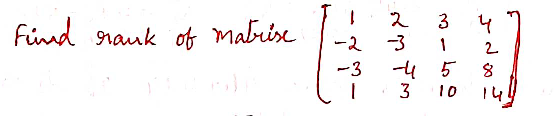 Find rank of matrix [ 1 2 3 4
-2 -3 1 2
-3 -4 5 8
1 3 10 14 ]